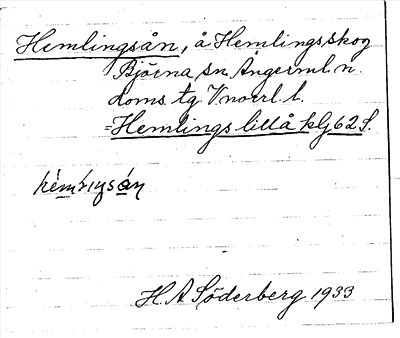 Hemlingsån, å Hemlingsskog
Björna sn. Ångerml. n.
doms. tg. V norrl. l.
=Hemlings lillå klj 62 S.
H. A Söderberg 1933